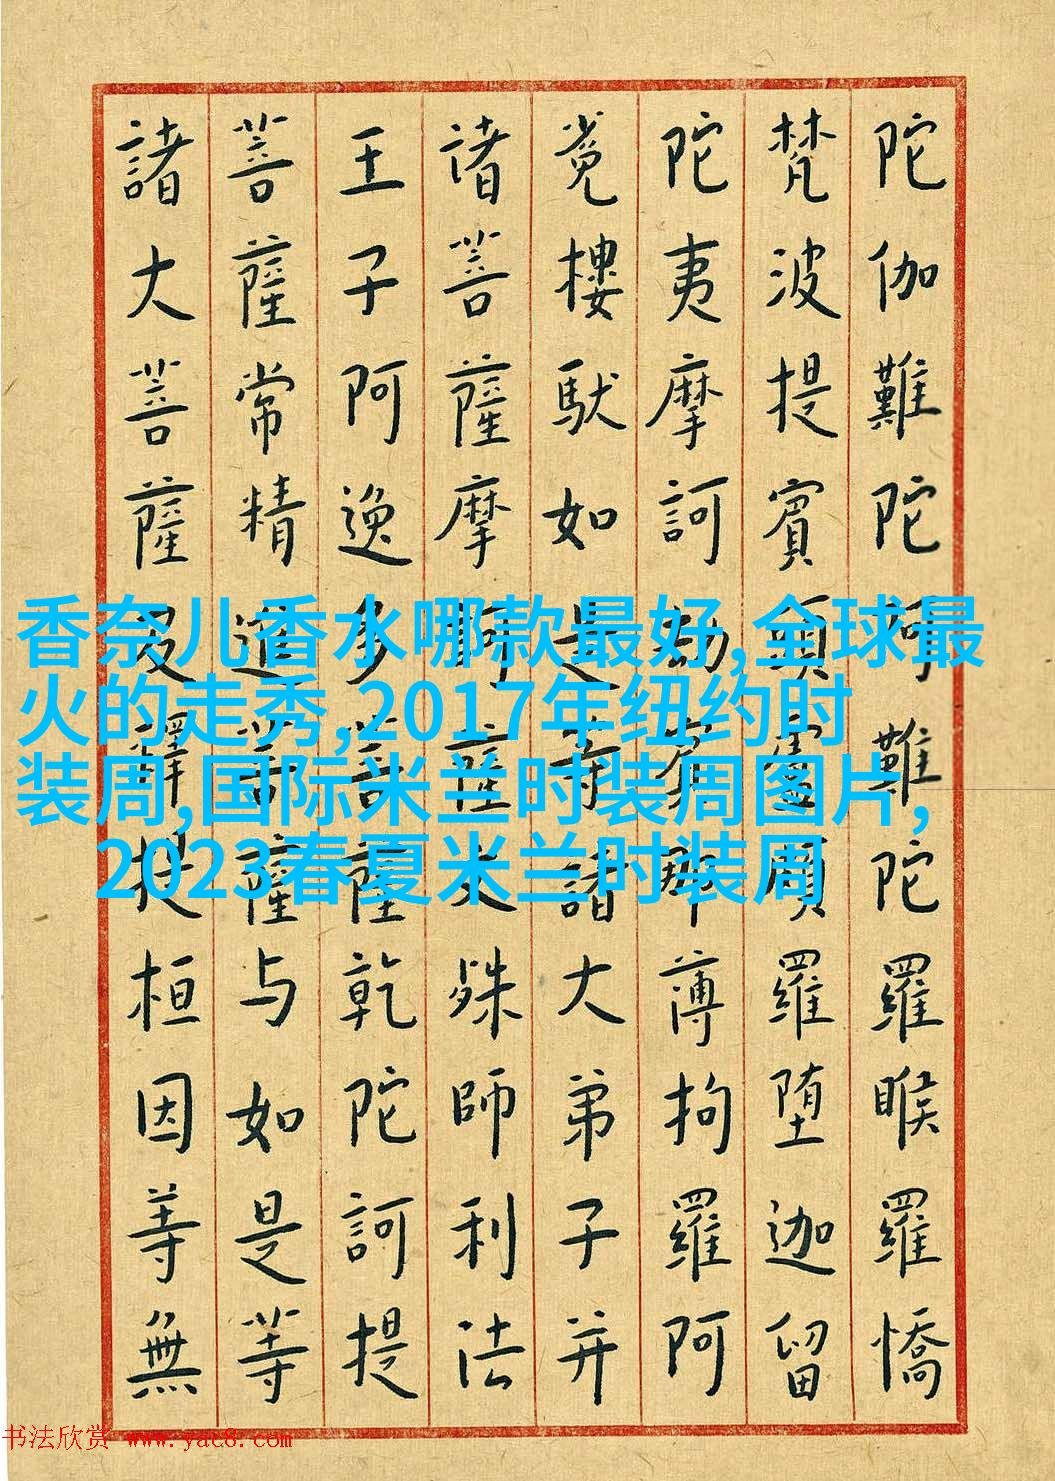 陀伽難陀阿難陀羅睺羅憍
梵波提賓頭盧頗羅堕迦留
陀夷摩訶劫賓那薄拘羅阿
㝹樓馱如是等諸大弟子并
诸菩薩摩訶薩文殊師利法
王子阿逸多菩薩乾陀訶提
菩薩常精進菩薩与如是等
諸大菩薩及釋提桓因等無
香奈儿香水哪款最好,全球最
火的走秀,2017年纽约时
装周,国际米兰时装周图片,
2023春夏米兰时装周
书法欣赏 www.yac8.com